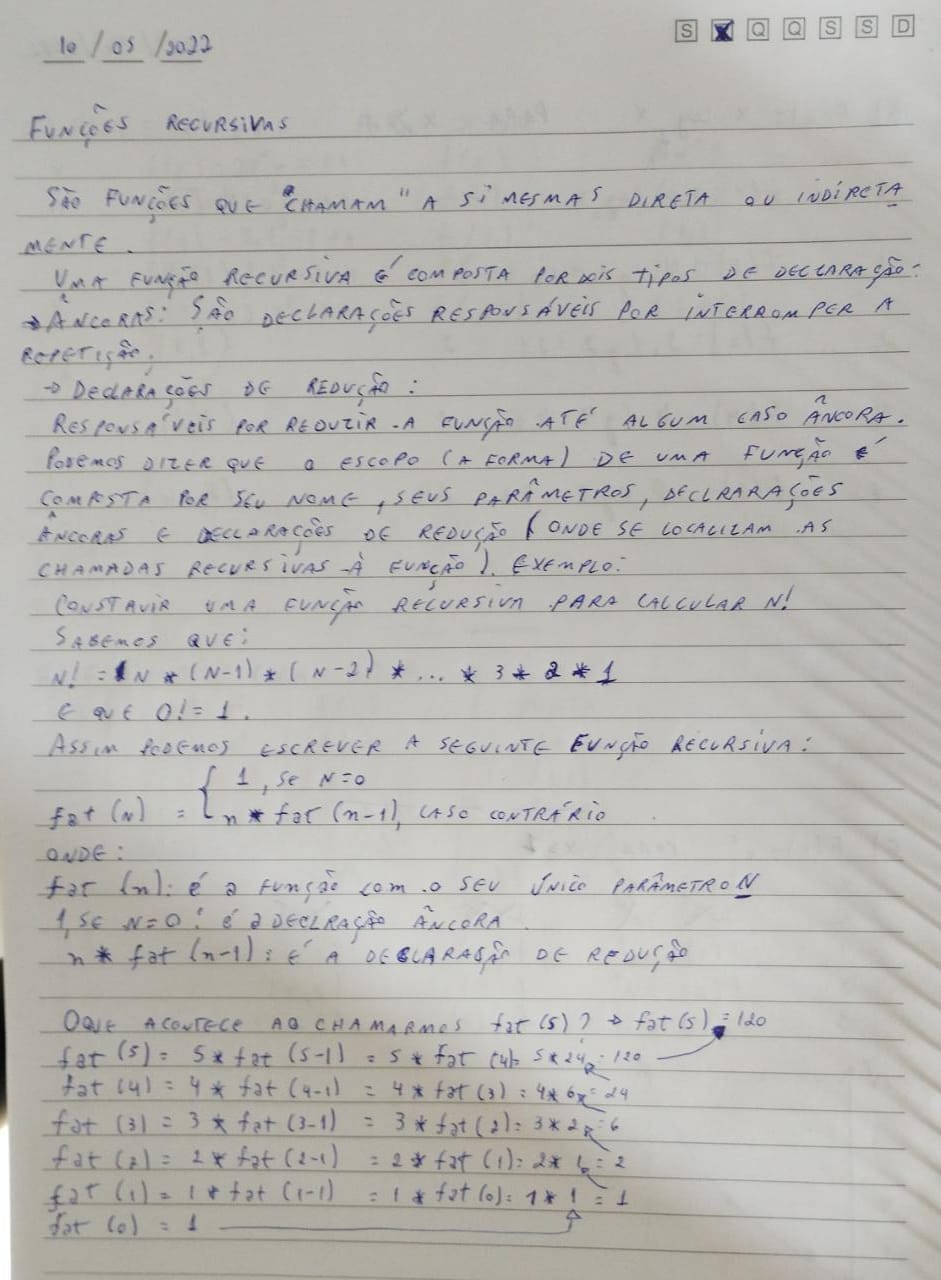 10/05/2022
S X Q Q S S D
FUNÇÕES RECURSIVAS
SÃO FUNÇÕES QUE "CHAMAM" A SÍ MESMAS DIRETA OU INDIRETA
MENTE.
UMA FUNÇÃO RECURSIVA É COMPOSTA POR DOIS TIPOS DE DECLARAÇÃO:
→ ÂNCORAS: SÃO DECLARAÇÕES RESPONSÁVEIS POR INTERROMPER A
REPETIÇÃO.
→ DECLARAÇÕES DE REDUÇÃO:
RESPONSÁVEIS POR REDUZIR A FUNÇÃO ATÉ ALGUM CASO ÂNCORA.
PODEMOS DIZER QUE O ESCOPO (A FORMA) DE UMA FUNÇÃO É
COMPOSTA POR SEU NOME, SEUS PARÂMETROS, DECLRARAÇÕES
ÂNCORAS E DECLARAÇÕES DE REDUÇÃO (ONDE SE LOCALIZAM AS
CHAMADAS RECURSIVAS À FUNÇÃO). EXEMPLO:
CONSTRUIR UMA FUNÇÃO RECURSIVA PARA CALCULAR N!
SABEMOS QUE:
N! = N * (N-1) * (N-2) * ... * 3 * 2 * 1
E QUE 0! = 1.
ASSIM PODEMOS ESCREVER A SEGUINTE FUNÇÃO RECURSIVA:
{ 1, SE N=0
fat (N) = { n * fat (n-1), CASO CONTRÁRIO
ONDE:
fat (n): é a FUNÇÃO COM O SEU ÚNICO PARÂMETRO N
1, SE N=0: é a DECLRAÇÃO ÂNCORA
n * fat (n-1): É A DECLARASÃO DE REDUÇÃO
OQUE ACONTECE AO CHAMARMOS fat (5)? → fat (5) = 120
fat (5) = 5 * fat (5-1) = 5 * fat (4) = 5 * 24 = 120
fat (4) = 4 * fat (4-1) = 4 * fat (3) = 4 * 6 = 24
fat (3) = 3 * fat (3-1) = 3 * fat (2) = 3 * 2 = 6
fat (2) = 2 * fat (2-1) = 2 * fat (1) = 2 * 1 = 2
fat (1) = 1 * fat (1-1) = 1 * fat (0) = 1 * 1 = 1
fat (0) = 1